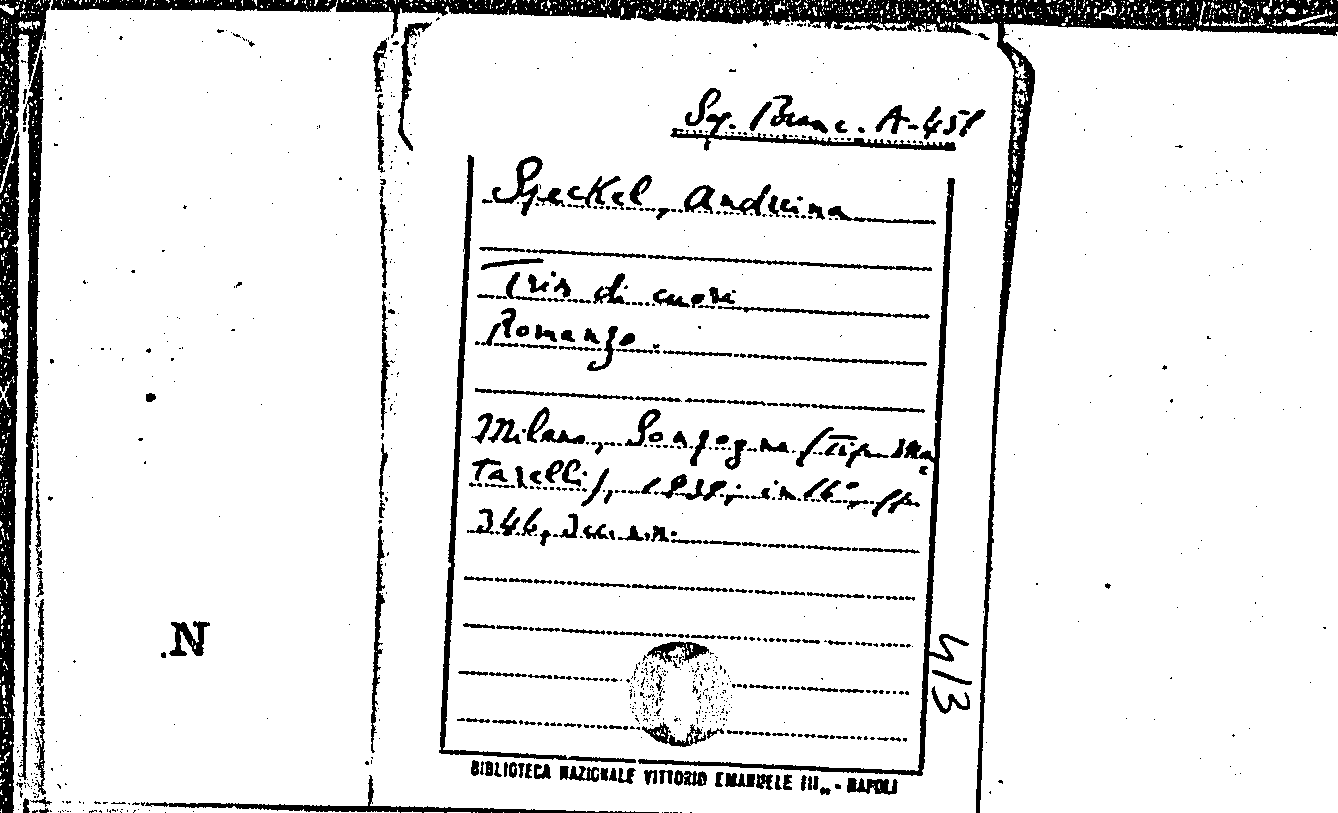 Sez. Branc. A-451
Speckel, Andreina
Tris di cuori
Romanzo.
Milano, Sonzogno (Tip. Ma
tarelli), 1939; in 16°, pp.
346, 3 cc. n.n.
4/3
N
BIBLIOTECA NAZIONALE VITTORIO EMANUELE III„ - NAPOLI